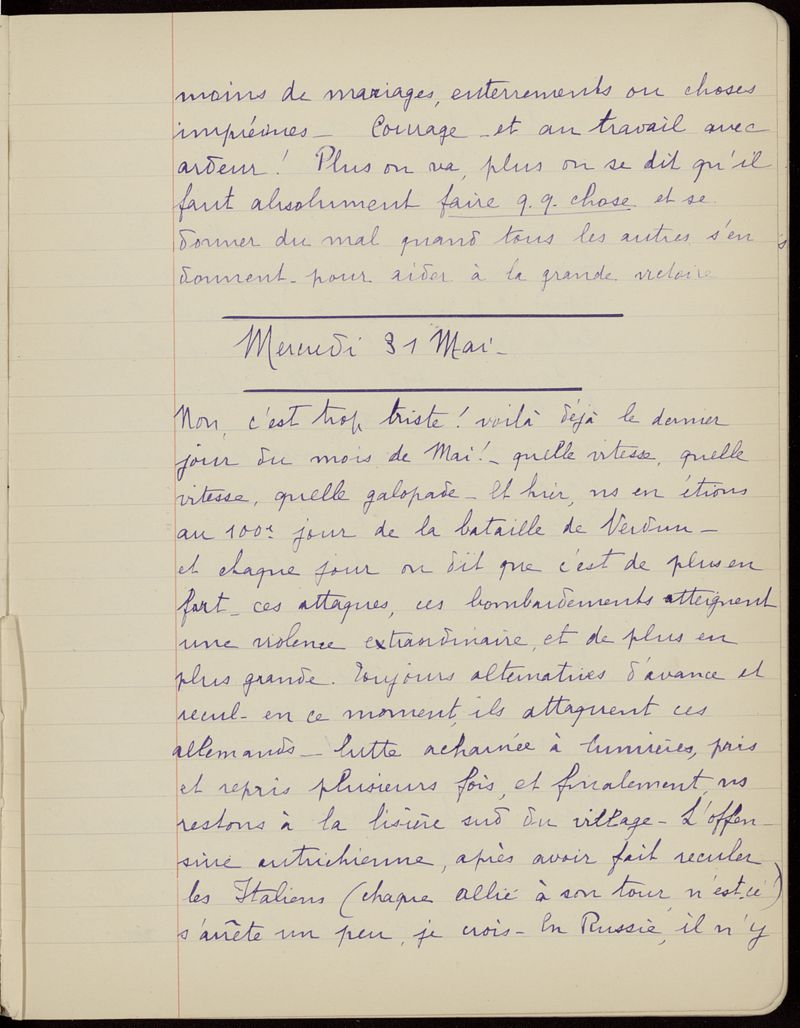 moins de mariages, enterrements ou choses
imprévues _ Courage _ et au travail avec
ardeur ! Plus on va, plus on se dit qu'il
faut absolument faire q. q. chose et se
donner du mal quand tous les autres s'en
donnent _ pour aider à la grande victoire
Mercredi 31 Mai _
Non, c'est trop triste ! voilà déjà le dernier
jour du mois de Mai ! _ quelle vitesse, quelle
vitesse, quelle galopade _ Et hier, ns en étions
au 100e jour de la bataille de Verdun _
et chaque jour on dit que c'est de plus en
fort _ ces attaques, ces bombardements atteignent
une violence extraordinaire, et de plus en
plus grande. Toujours alternatives d'avance et
recul _ en ce moment, ils attaquent ces
allemands _ lutte acharnée à Cumières, pris
et repris plusieurs fois, et finalement, ns
restons à la lisière sud du village _ L'offen-
sive autrichienne, après avoir fait reculer
les Italiens (chaque allié à son tour, n'est-ce !)
s'arrête un peu, je crois _ En Russie, il n'y